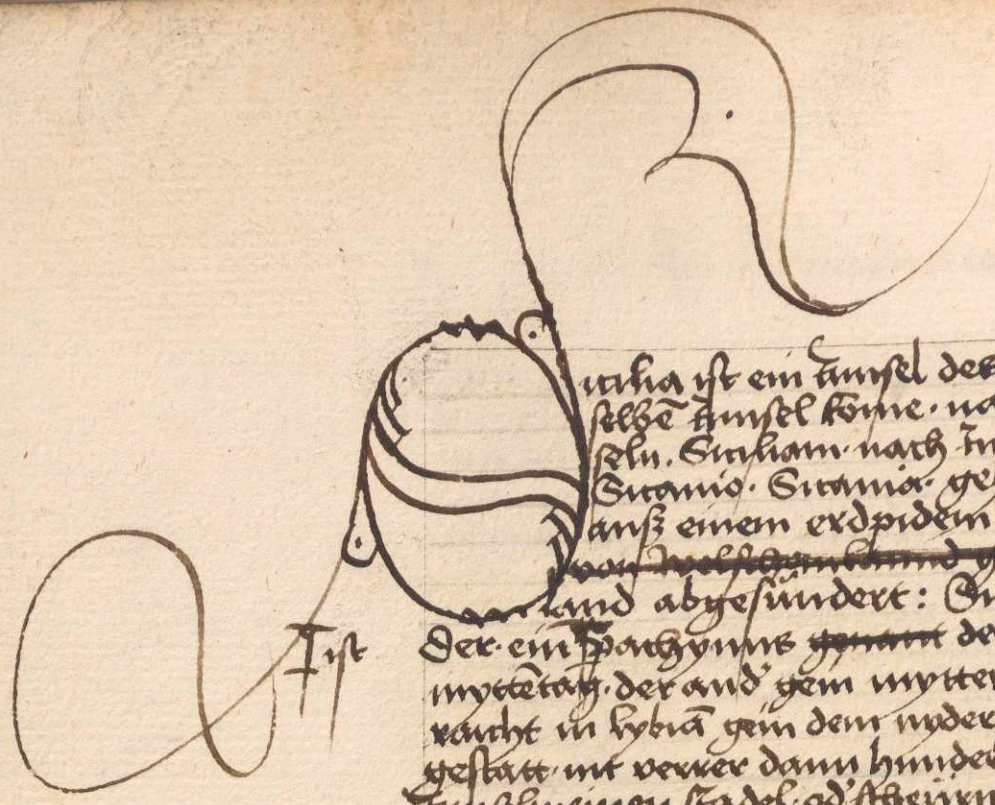 Sicilia ist ein Innsel der
selbē Innsel kōme. na
seln. Siciliam. nach In
Sicanio. Sicania. ge
ausz einem erdpidem
von welschem lannd g
land abgesündert: Su
ist der. ein Pachynus genant de
myttētag. der and' gein mytter
raicht in lybiā gein dem nyder
gestatt. nit verrer dann hunder